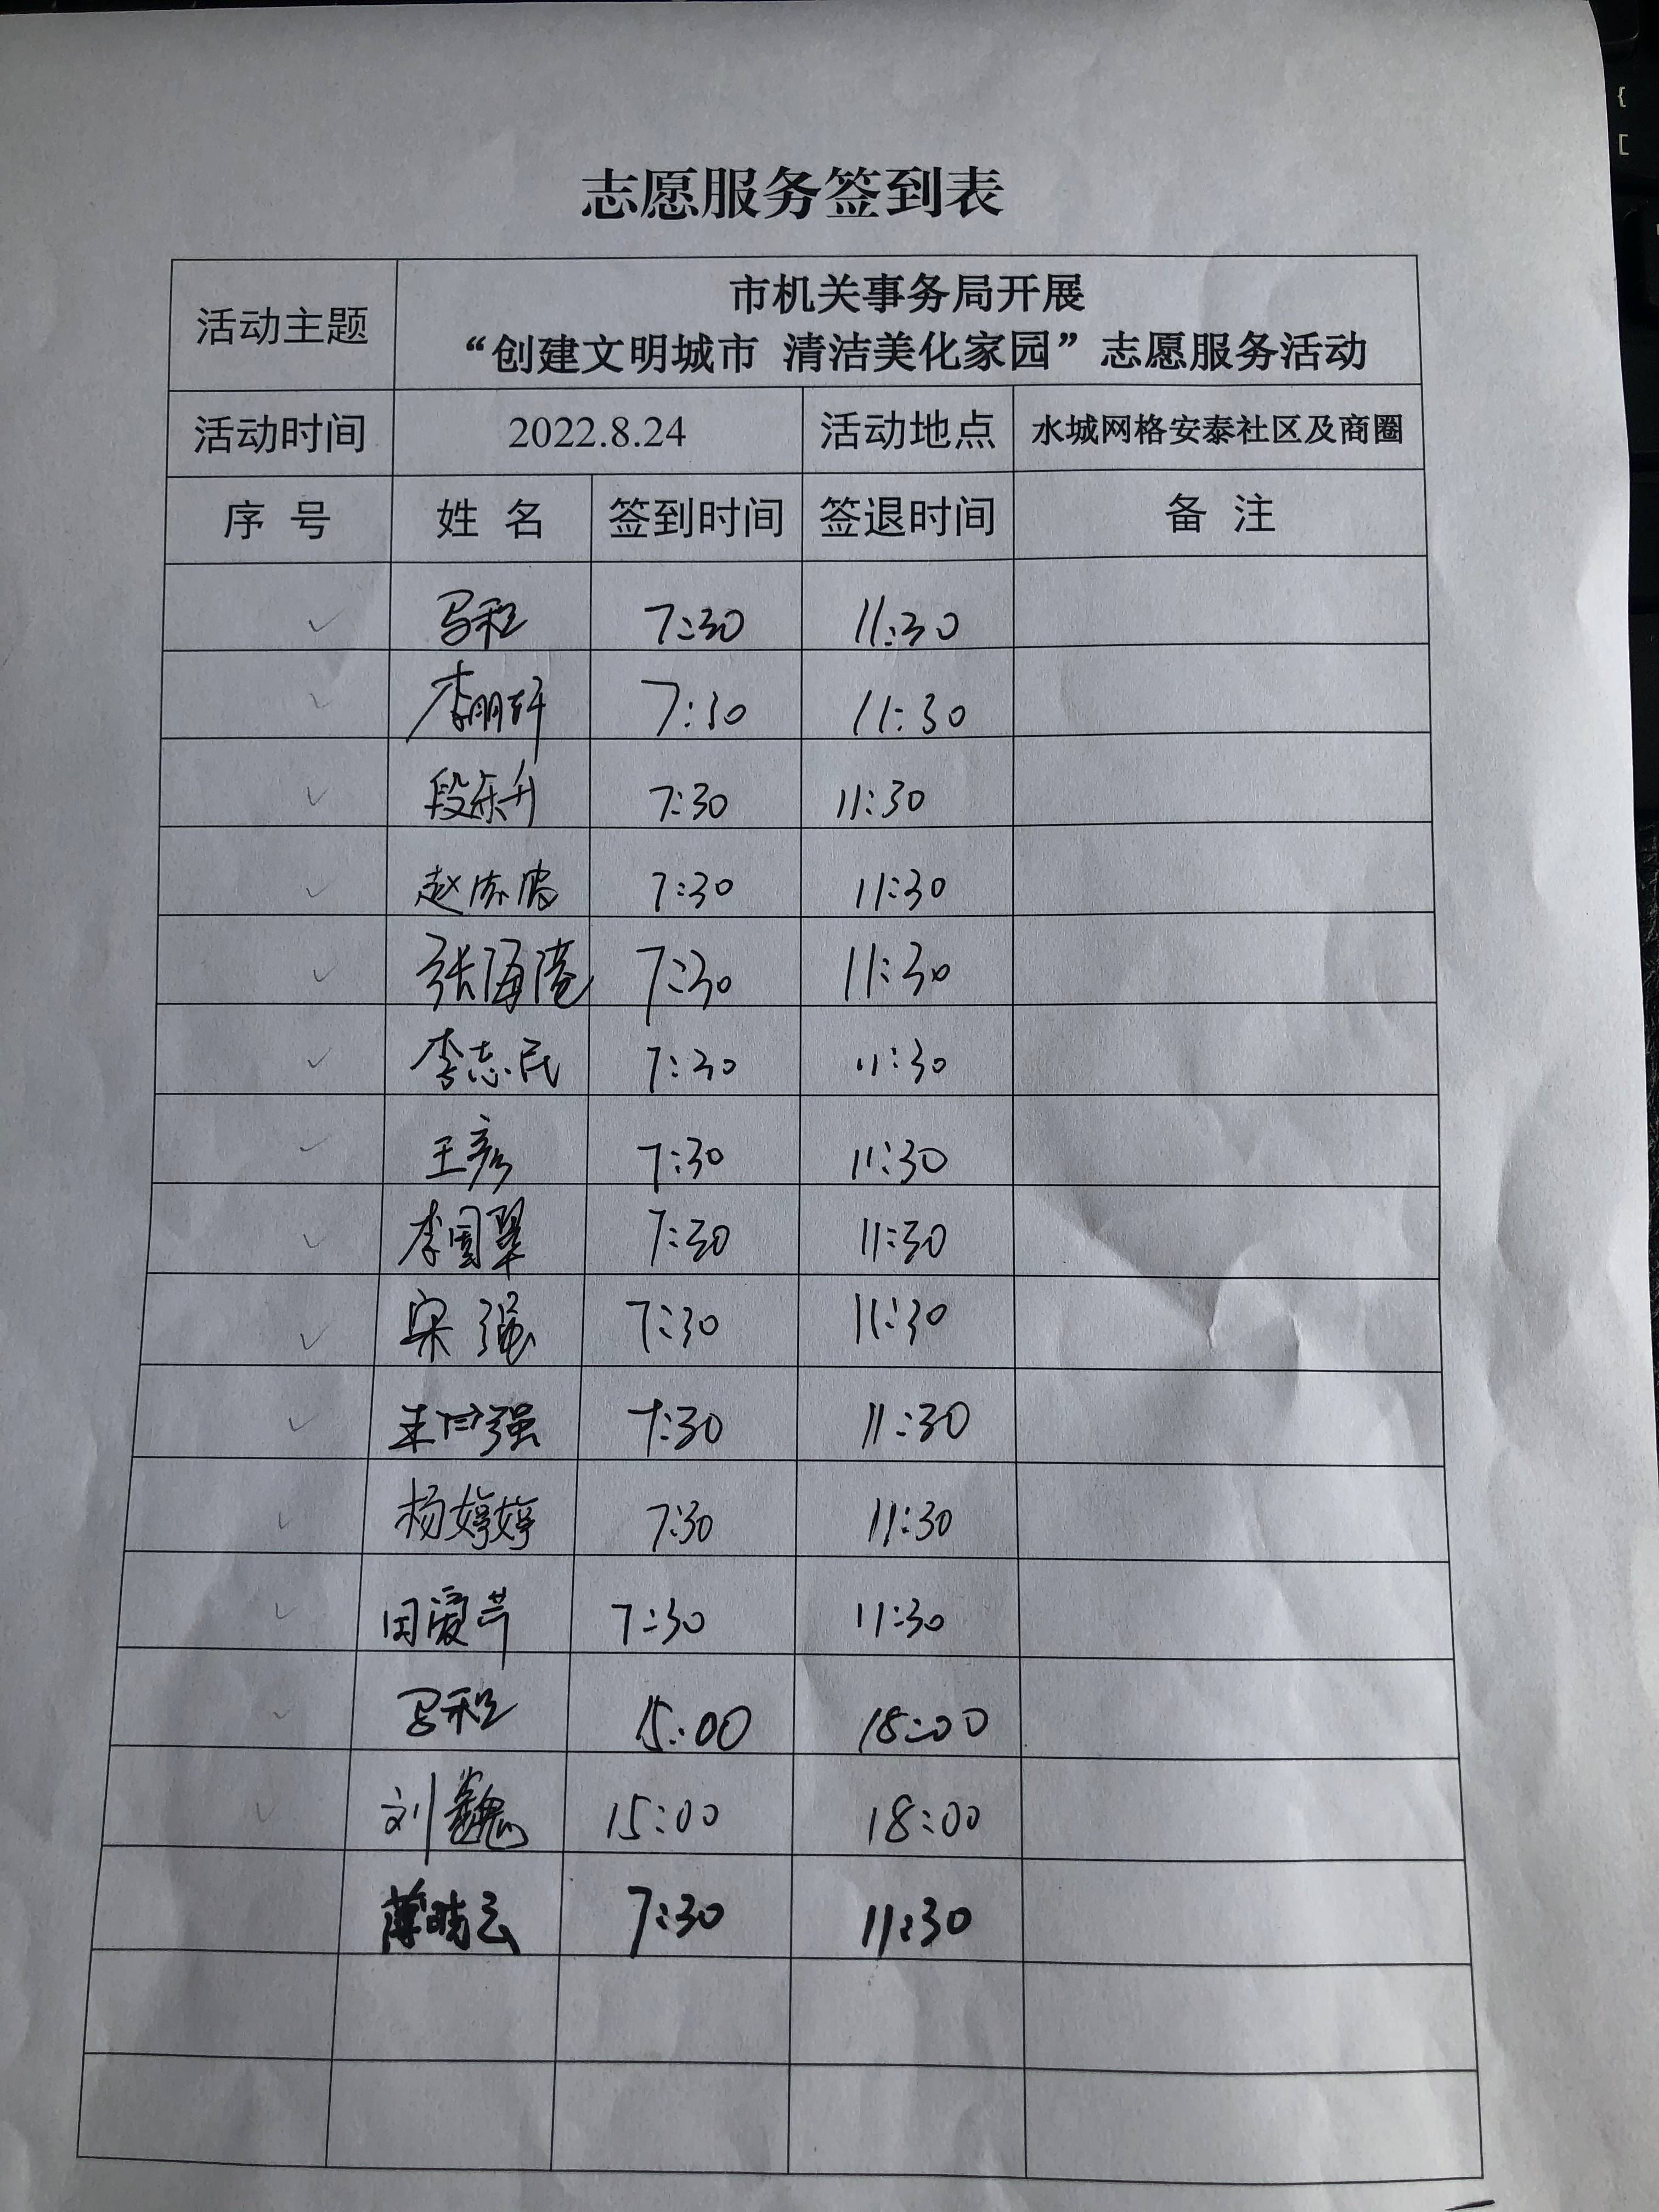 志愿服务签到表
活动主题
市机关事务局开展
“创建文明城市 清洁美化家园”志愿服务活动
活动时间 2022.8.24 活动地点 水城网格安泰社区及商圈
序 号 姓 名 签到时间 签退时间 备 注
✓ 马程 7:30 11:30
✓ 李朋轩 7:30 11:30
✓ 段东升 7:30 11:30
✓ 赵 7:30 11:30
✓ 张海港 7:30 11:30
✓ 李志民 7:30 11:30
✓ 王彦 7:30 11:30
✓ 李国翠 7:30 11:30
✓ 宋强 7:30 11:30
✓ 强 7:30 11:30
✓ 杨婷婷 7:30 11:30
✓ 田爱芹 7:30 11:30
✓ 马程 15:00 18:00
✓ 刘巍 15:00 18:00
薄晓云 7:30 11:30
{
[